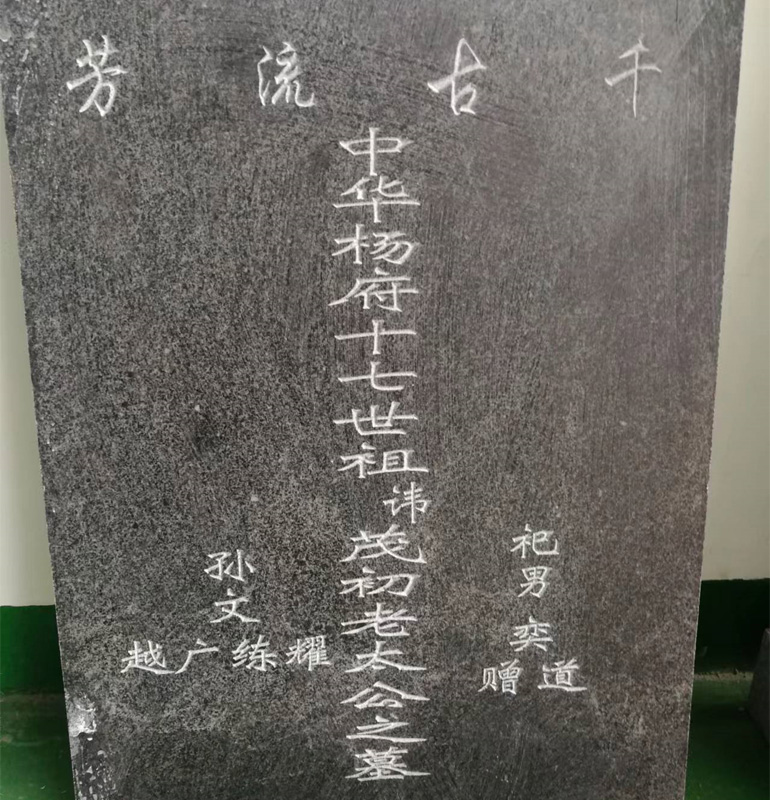 千古流芳
中华杨府十七世祖讳茂初老太公之墓
祀男 奕 道赠
孙 文 耀练广越